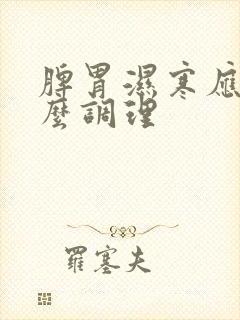 脾胃濕寒應
麼調理
羅塞夫